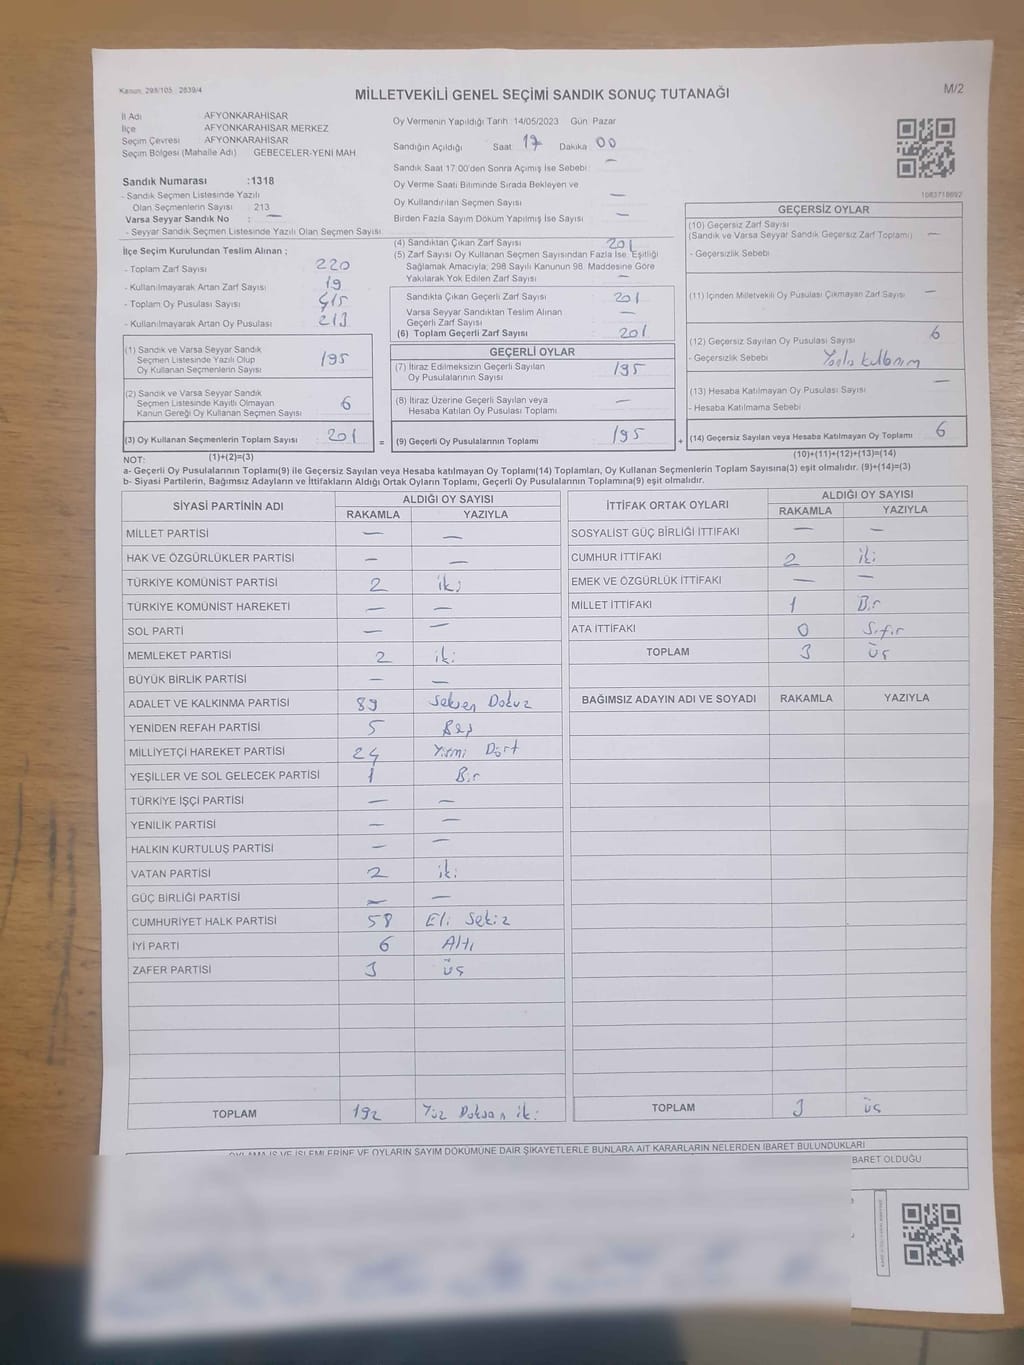 Kanun: 298/105 2839/4
MİLLETVEKİLİ GENEL SEÇİMİ SANDIK SONUÇ TUTANAĞI
M/2
İl Adı AFYONKARAHİSAR
İlçe AFYONKARAHİSAR MERKEZ
Seçim Çevresi AFYONKARAHİSAR
Seçim Bölgesi (Mahalle Adı) GEBECELER-YENİ MAH
Sandık Numarası :1318
- Sandık Seçmen Listesinde Yazılı
Olan Seçmenlerin Sayısı : 213
Varsa Seyyar Sandık No : —
- Seyyar Sandık Seçmen Listesinde Yazılı Olan Seçmen Sayısı
Oy Vermenin Yapıldığı Tarih: 14/05/2023 Gün: Pazar
Sandığın Açıldığı Saat: 17 Dakika: 00
Sandık Saat 17:00'den Sonra Açımış İse Sebebi : —
Oy Verme Saati Bitiminde Sırada Bekleyen ve
Oy Kullandırılan Seçmen Sayısı —
Birden Fazla Sayım Döküm Yapılmış İse Sayısı —
İlçe Seçim Kurulundan Teslim Alınan ;
- Toplam Zarf Sayısı 220
- Kullanılmayarak Artan Zarf Sayısı 19
- Toplam Oy Pusulası Sayısı 415
- Kullanılmayarak Artan Oy Pusulası 213
(1) Sandık ve Varsa Seyyar Sandık
Seçmen Listesinde Yazılı Olup
Oy Kullanan Seçmenlerin Sayısı 195
(2) Sandık ve Varsa Seyyar Sandık
Seçmen Listesinde Kayıtlı Olmayan
Kanun Gereği Oy Kullanan Seçmen Sayısı 6
(3) Oy Kullanan Seçmenlerin Toplam Sayısı 201 =
(4) Sandıktan Çıkan Zarf Sayısı 201
(5) Zarf Sayısı Oy Kullanan Seçmen Sayısından Fazla İse, Eşitliği
Sağlamak Amacıyla; 298 Sayılı Kanunun 98. Maddesine Göre
Yakılarak Yok Edilen Zarf Sayısı —
Sandıkta Çıkan Geçerli Zarf Sayısı 201
Varsa Seyyar Sandıktan Teslim Alınan
Geçerli Zarf Sayısı —
(6) Toplam Geçerli Zarf Sayısı 201
GEÇERLİ OYLAR
(7) İtiraz Edilmeksizin Geçerli Sayılan
Oy Pusulalarının Sayısı 195
(8) İtiraz Üzerine Geçerli Sayılan veya
Hesaba Katılan Oy Pusulası Toplamı —
(9) Geçerli Oy Pusulalarının Toplamı 195 +
1083718692
GEÇERSİZ OYLAR
(10) Geçersiz Zarf Sayısı
(Sandık ve Varsa Seyyar Sandık Geçersiz Zarf Toplamı) —
- Geçersizlik Sebebi
(11) İçinden Milletvekili Oy Pusulası Çıkmayan Zarf Sayısı —
(12) Geçersiz Sayılan Oy Pusulası Sayısı 6
- Geçersizlik Sebebi Yanlış kullanım
(13) Hesaba Katılmayan Oy Pusulası Sayısı —
- Hesaba Katılmama Sebebi
(14) Geçersiz Sayılan veya Hesaba Katılmayan Oy Toplamı 6
NOT: (1)+(2)=(3) (10)+(11)+(12)+(13)=(14)
a- Geçerli Oy Pusulalarının Toplamı(9) ile Geçersiz Sayılan veya Hesaba katılmayan Oy Toplamı(14) Toplamları, Oy Kullanan Seçmenlerin Toplam Sayısına(3) eşit olmalıdır. (9)+(14)=(3)
b- Siyasi Partilerin, Bağımsız Adayların ve İttifakların Aldığı Ortak Oyların Toplamı, Geçerli Oy Pusulalarının Toplamına(9) eşit olmalıdır.
SİYASİ PARTİNİN ADI ALDIĞI OY SAYISI
RAKAMLA YAZIYLA
MİLLET PARTİSİ — —
HAK VE ÖZGÜRLÜKLER PARTİSİ — —
TÜRKİYE KOMÜNİST PARTİSİ 2 iki
TÜRKİYE KOMÜNİST HAREKETİ — —
SOL PARTİ — —
MEMLEKET PARTİSİ 2 iki
BÜYÜK BİRLİK PARTİSİ — —
ADALET VE KALKINMA PARTİSİ 89 Seksen Dokuz
YENİDEN REFAH PARTİSİ 5 Beş
MİLLİYETÇİ HAREKET PARTİSİ 24 Yirmi Dört
YEŞİLLER VE SOL GELECEK PARTİSİ 1 Bir
TÜRKİYE İŞÇİ PARTİSİ — —
YENİLİK PARTİSİ — —
HALKIN KURTULUŞ PARTİSİ — —
VATAN PARTİSİ 2 iki
GÜÇ BİRLİĞİ PARTİSİ — —
CUMHURİYET HALK PARTİSİ 58 Eli Sekiz
İYİ PARTİ 6 Altı
ZAFER PARTİSİ 3 üç
TOPLAM 192 Yüz Doksan iki
İTTİFAK ORTAK OYLARI ALDIĞI OY SAYISI
RAKAMLA YAZIYLA
SOSYALİST GÜÇ BİRLİĞİ İTTİFAKI — —
CUMHUR İTTİFAKI 2 iki
EMEK VE ÖZGÜRLÜK İTTİFAKI — —
MİLLET İTTİFAKI 1 Bir
ATA İTTİFAKI 0 Sıfır
TOPLAM 3 üç
BAĞIMSIZ ADAYIN ADI VE SOYADI RAKAMLA YAZIYLA
TOPLAM 3 üç
OYLAMA İŞ VE İŞLEMLERİNE VE OYLARIN SAYIM DÖKÜMÜNE DAİR ŞİKAYETLERLE BUNLARA AİT KARARLARIN NELERDEN İBARET BULUNDUKLARI
BARET OLDUĞU